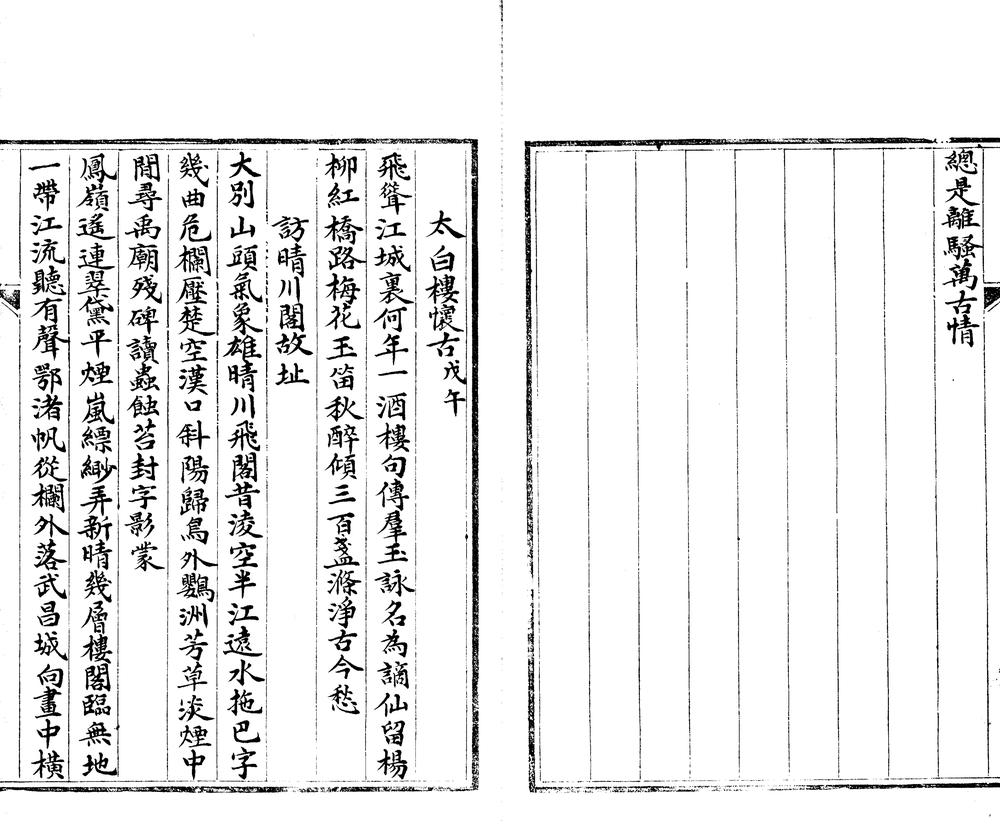 總是離騷萬古情
太白樓懷古戊午
飛聳江城裏何年一酒樓句傳羣玉詠名為謫仙留楊
柳紅橋路梅花玉笛秋醉傾三百盞滌淨古今愁
訪晴川閣故址
大別山頭氣象雄晴川飛閣昔淩空半江遠水拖巴字
幾曲危欄壓楚空漢口斜陽歸鳥外鸚洲芳草淡煙中
閒尋禹廟殘碑讀蟲蝕苔封字影蒙
鳳嶺遙連翠黛平煙嵐縹緲弄新晴幾層樓閣臨無地
一帶江流聽有聲鄂渚帆從欄外落武昌城向畫中橫